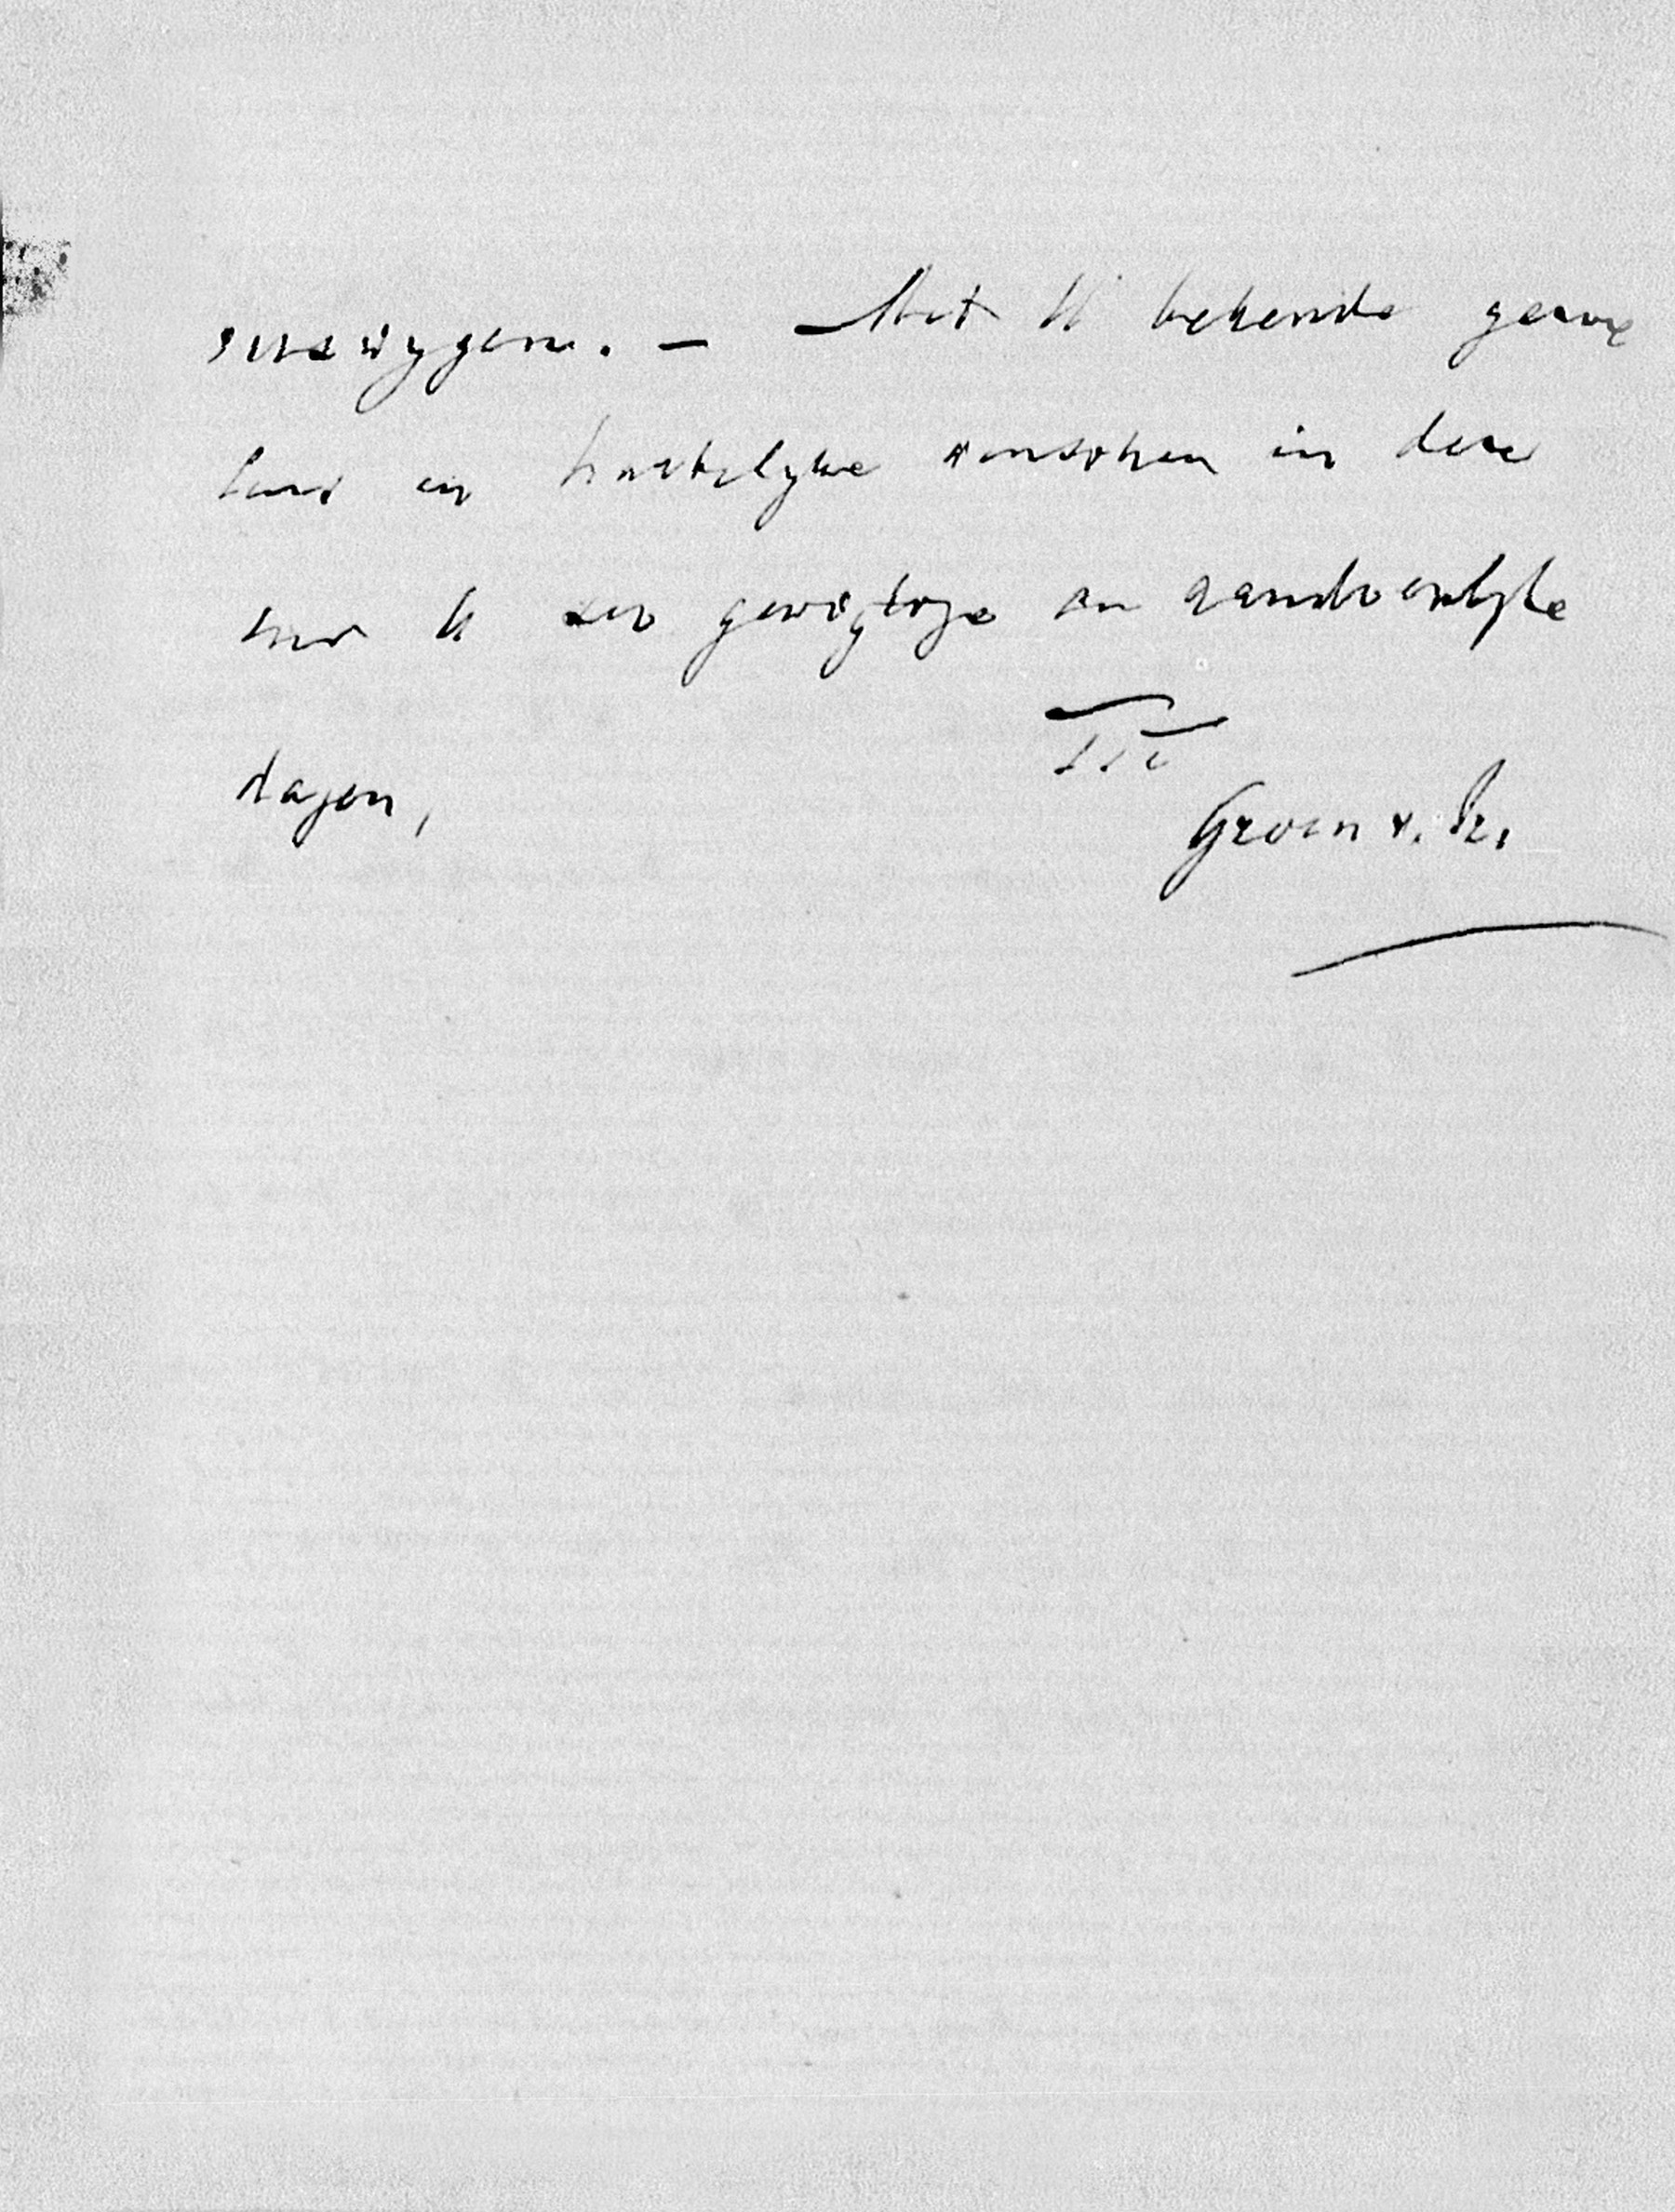 verzwygen. — Met U bekende gevoe
lens en hartelyke wenschen in deze
voor U zeo gewigtige en aandoenlyke
dagen,
TT
Groen v. Pr.